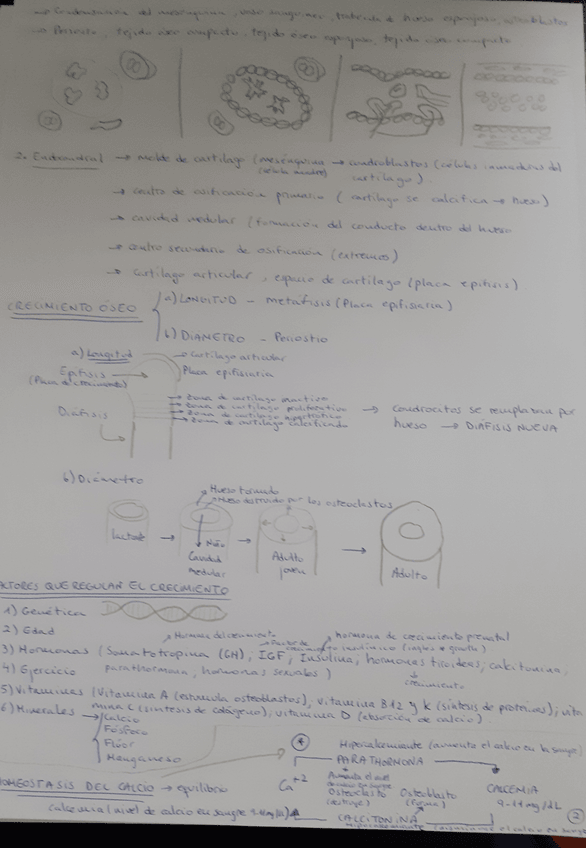 → Condensación del mesénquima, vaso sanguíneo, trabécula de hueso esponjoso, osteoblastos
→ Periostio, tejido óseo compacto, tejido óseo esponjoso, tejido óseo compacto
2. Endocondral → molde de cartílago (mesénquima → condroblastos (células inmaduras del
(célula madre) cartílago).
→ centro de osificación primario (cartílago se calcifica → hueso)
→ cavidad medular (formación del conducto dentro del hueso
→ centro secundario de osificación (extremos)
→ cartílago articular, espacio de cartílago (placa epífisis)
CRECIMIENTO ÓSEO
a) LONGITUD - metáfisis (Placa epifisiaria)
b) DIAMETRO - Periostio
a) Longitud
→ Cartílago articular
Epífisis → Placa epifisiaria
(Placa de crecimiento)
→ Zona de cartílago
→ Zona de cartílago proliferativo
→ Zona de cartílago hipertrófico
→ Zona de cartílago calcificado
→ Condrocitos se remplazan por
hueso → DIÁFISIS NUEVA
Diáfisis
b) Diámetro
Hueso formado
Hueso destruido por los osteoclastos
lactante → Niño → Adulto joven → Adulto
Cavidad medular
FACTORES QUE REGULAN EL CRECIMIENTO
1) Genética
2) Edad
Hormona del crecimiento
hormona de crecimiento prenatal
3) Hormonas (Somatotropina (GH), IGF, Insulina, hormonas tiroideas, calcitonina,
parathormona, hormonas sexuales)
crecimiento
4) Ejercicio
5) Vitaminas (Vitamina A (estimula osteoblastos), vitamina B12 y K (síntesis de proteínas), vita
mina C (síntesis de colágeno), vitamina D (absorción de calcio).
6) Minerales → Calcio
Fósforo
Flúor
Manganeso
Hipercalcemiante (aumenta el calcio en la sangre)
PARATHORMONA
HOMEOSTASIS DEL CALCIO → equilibrio
Ca+2
Osteoclasto
(destruye)
Osteoblasto
(forma)
CALCEMIA
9-11 mg/dL
CALCITONINA
2